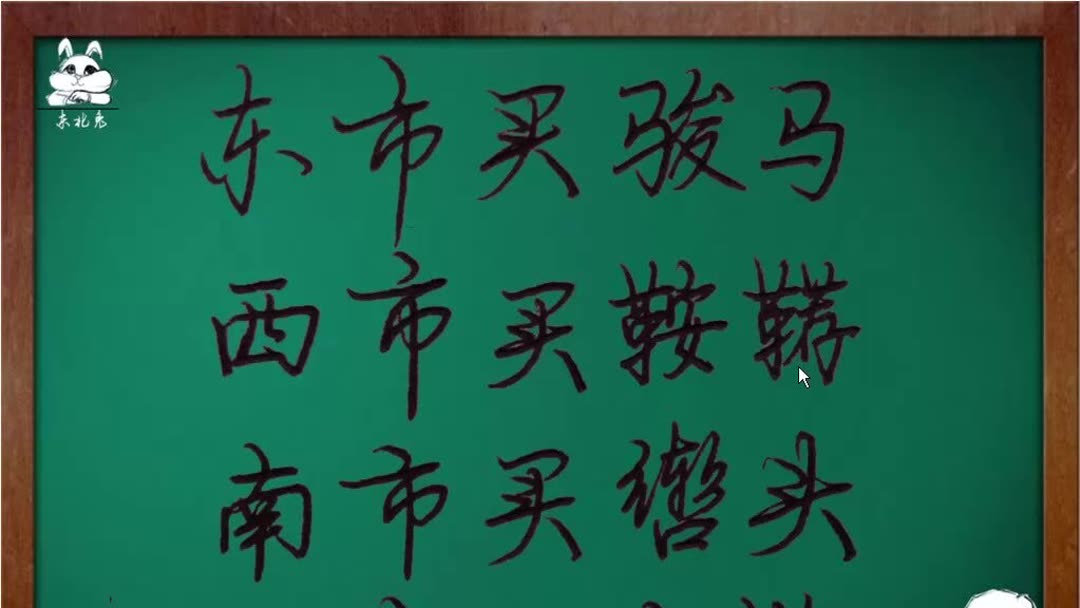 东北兔
东市买骏马
西市买鞍鞯
南市买辔头